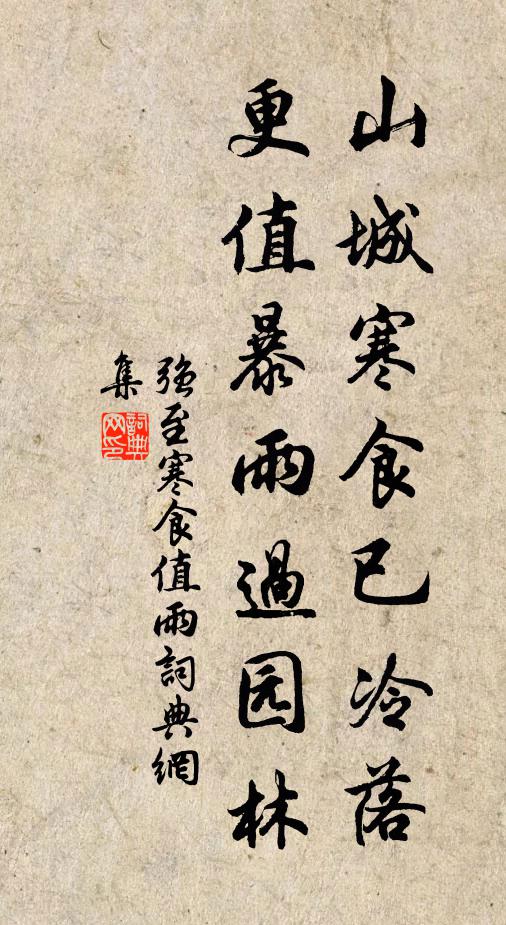 山城寒食已冷落
更值暴雨過园林
強至寒食值雨詞典網
集
詞典
网印